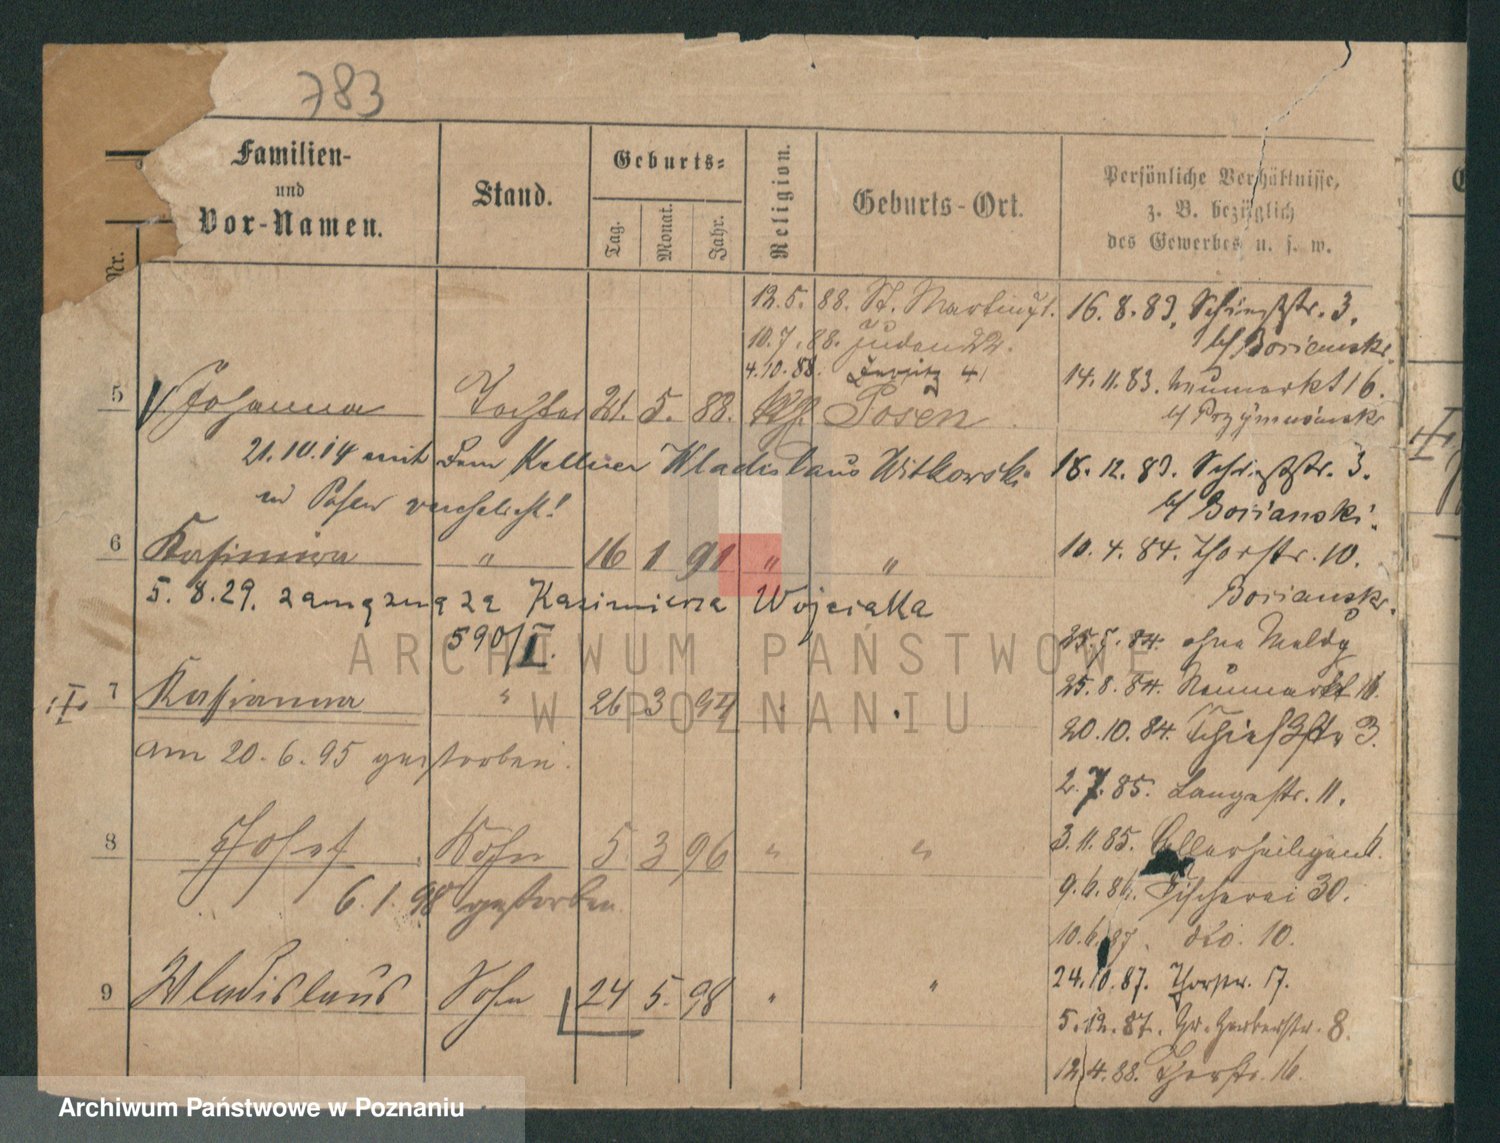 783
Familien-
und
Vor-Namen.
Stand.
Geburts-
Tag.
Monat.
Jahr.
Religion.
Geburts-Ort.
Persönliche Verhältnisse,
z. B. bezüglich
des Gewerbes u. s. w.
Nr.
12.5.88. St. Martinstr.
10.7.88. Juden 22.
4.10.88.
5 Johanna Tochter 21. 5. 88. kth. Posen
21.10.14 mit dem Kellner Wladislaus Witkowski
in Posen verehelicht!
6 Kasimira " 16 1 91 " "
5.8.29. zamężna za Kazimierza Wojciaka
590/I.
7 Kasianna " 26 3 94
am 20.6.95 gestorben.
8 Josef Sohn 5. 3 96 " "
6.1.98 gestorben.
9 Wladislaus Sohn 24 5. 98 " "
16.8.83. Schiesstr. 3.
bei Borianski.
14.11.83. Neumarkt 16.
bei
18.12.83. Schiesstr. 3.
bei Borianski.
10.4.84. Thorstr. 10.
Borianski.
25.5.84. ohne Meldg
25.8.84. Neumarkt 16.
20.10.84. Schießstr 3.
2.7.85. Langestr. 11.
3.11.85. Allerheiligen
9.6.86. Fischerei 30.
10.6.87. dto. 10.
24.10.87. Thorstr. 17.
5.12.87. Gr. Gerberstr. 8.
12.4.88. Thorstr. 16.
ARCHIWUM PAŃSTWOWE
W POZNANIU
Archiwum Państwowe w Poznaniu